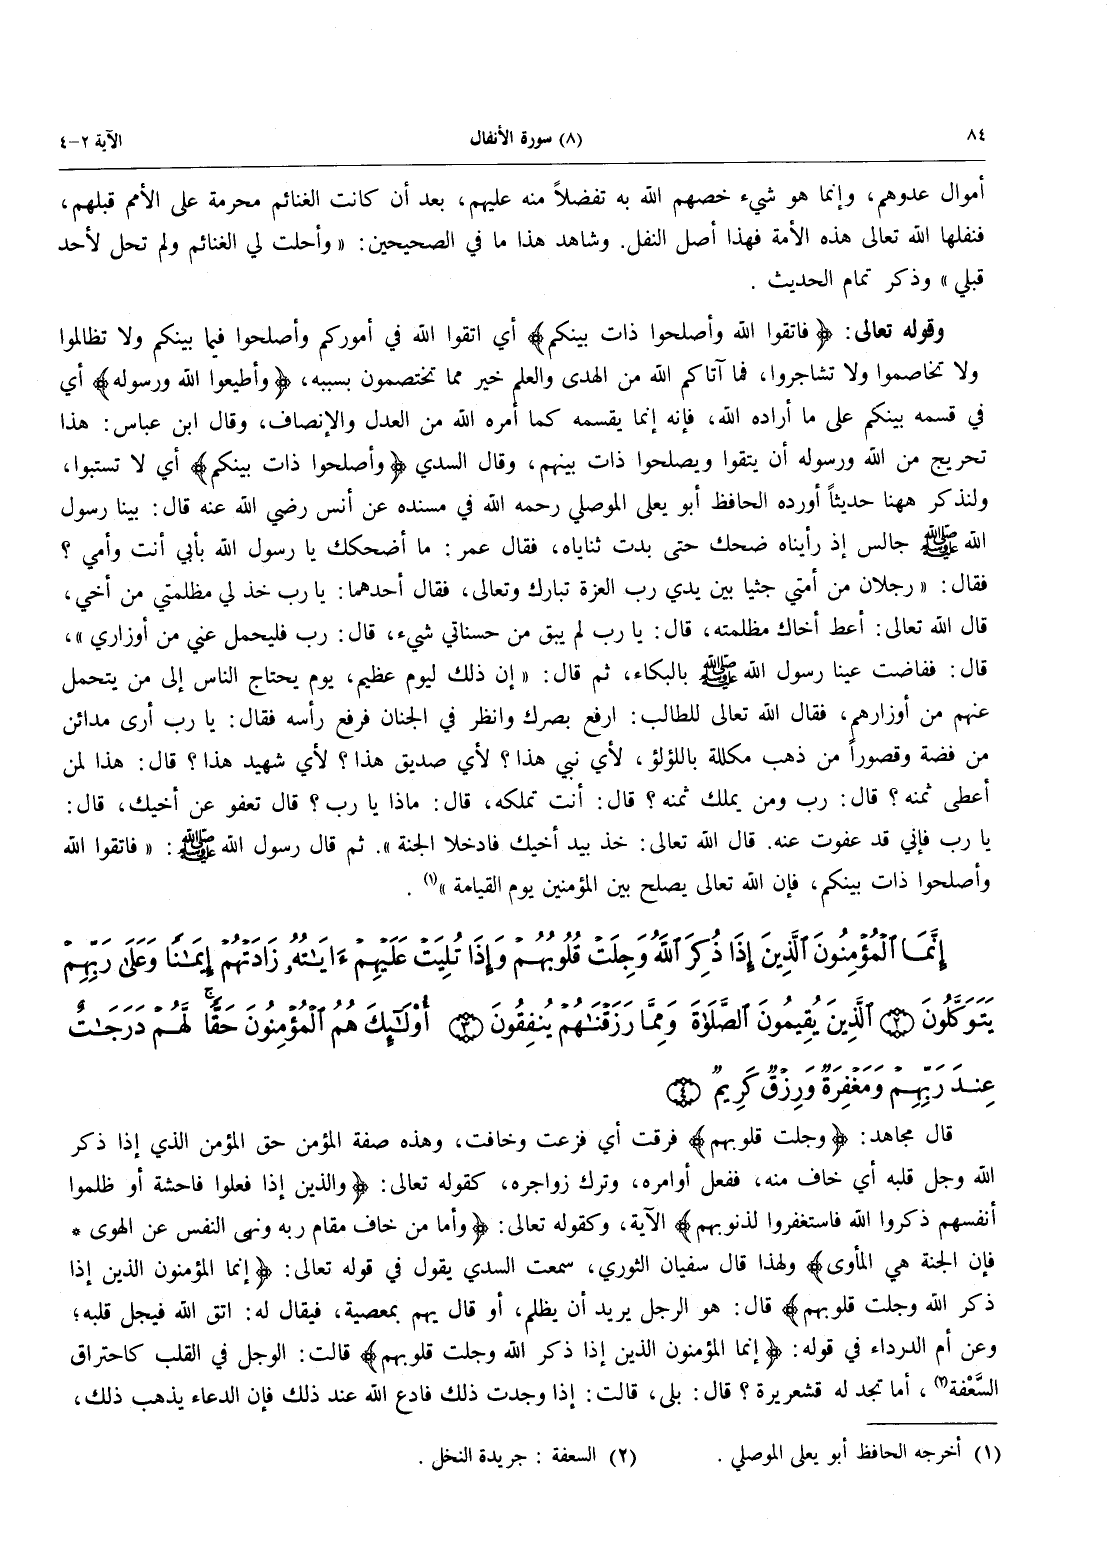 ٨٤
(٨) سورة الأنفال
الآية ٢-٤
أموال عدوهم، وإنما هو شيء خصهم الله به تفضلاً منه عليهم، بعد أن كانت الغنائم محرمة على الأمم قبلهم،
فنفلها الله تعالى هذه الأمة فهذا أصل النفل. وشاهد هذا ما في الصحيحين: « وأحلت لي الغنائم ولم تحل لأحد
قبلي » وذكر تمام الحديث .
وقوله تعالى: ﴿ فاتقوا الله وأصلحوا ذات بينكم﴾ أي اتقوا الله في أموركم وأصلحوا فيما بينكم ولا تظالموا
ولا تخاصموا ولا تشاجروا، فما آتاكم الله من الهدى والعلم خير مما تختصمون بسببه، ﴿ وأطيعوا الله ورسوله﴾ أي
في قسمه بينكم على ما أراده الله، فإنه إنما يقسمه كما أمره الله من العدل والإنصاف، وقال ابن عباس: هذا
تحريج من الله ورسوله أن يتقوا ويصلحوا ذات بينهم، وقال السدي ﴿ وأصلحوا ذات بينكم﴾ أي لا تستبوا،
ولنذكر ههنا حديثاً أورده الحافظ أبو يعلى الموصلي رحمه الله في مسنده عن أنس رضي الله عنه قال: بينا رسول
الله ﷺ جالس إذ رأيناه ضحك حتى بدت ثناياه، فقال عمر: ما أضحكك يا رسول الله بأبي أنت وأمي ؟
فقال: « رجلان من أمتي جثيا بين يدي رب العزة تبارك وتعالى، فقال أحدهما: يا رب خذ لي مظلمتي من أخي،
قال الله تعالى: أعط أخاك مظلمته، قال: يا رب لم يبق من حسناتي شيء، قال: رب فليحمل عني من أوزاري »،
قال: ففاضت عينا رسول الله ﷺ بالبكاء، ثم قال: « إن ذلك ليوم عظيم، يوم يحتاج الناس إلى من يتحمل
عنهم من أوزارهم، فقال الله تعالى للطالب: ارفع بصرك وانظر في الجنان فرفع رأسه فقال: يا رب أرى مدائن
من فضة وقصوراً من ذهب مكللة باللؤلؤ، لأي نبي هذا ؟ لأي صديق هذا ؟ لأي شهيد هذا ؟ قال: هذا لمن
أعطى ثمنه ؟ قال: رب ومن يملك ثمنه ؟ قال: أنت تملكه، قال: ماذا يا رب ؟ قال تعفو عن أخيك، قال:
يا رب فإني قد عفوت عنه. قال الله تعالى: خذ بيد أخيك فادخلا الجنة ». ثم قال رسول الله ﷺ: « فاتقوا الله
وأصلحوا ذات بينكم، فإن الله تعالى يصلح بين المؤمنين يوم القيامة »(١) .
إِنَّمَا ٱلْمُؤْمِنُونَ ٱلَّذِينَ إِذَا ذُكِرَ ٱللَّهُ وَجِلَتْ قُلُوبُهُمْ وَإِذَا تُلِيَتْ عَلَيْهِمْ ءَايَٰتُهُۥ زَادَتْهُمْ إِيمَٰنًا وَعَلَىٰ رَبِّهِمْ
يَتَوَكَّلُونَ ﴿٢﴾ ٱلَّذِينَ يُقِيمُونَ ٱلصَّلَوٰةَ وَمِمَّا رَزَقْنَٰهُمْ يُنفِقُونَ ﴿٣﴾ أُوْلَٰٓئِكَ هُمُ ٱلْمُؤْمِنُونَ حَقًّاۚ لَّهُمْ دَرَجَٰتٌ
عِندَ رَبِّهِمْ وَمَغْفِرَةٌ وَرِزْقٌ كَرِيمٌ ﴿٤﴾
قال مجاهد: ﴿ وجلت قلوبهم﴾ فرقت أي فزعت وخافت، وهذه صفة المؤمن حق المؤمن الذي إذا ذكر
الله وجل قلبه أي خاف منه، ففعل أوامره، وترك زواجره، كقوله تعالى: ﴿ والذين إذا فعلوا فاحشة أو ظلموا
أنفسهم ذكروا الله فاستغفروا لذنوبهم﴾ الآية، وكقوله تعالى: ﴿ وأما من خاف مقام ربه ونهى النفس عن الهوى *
فإن الجنة هي المأوى﴾ ولهذا قال سفيان الثوري، سمعت السدي يقول في قوله تعالى: ﴿ إنما المؤمنون الذين إذا
ذكر الله وجلت قلوبهم﴾ قال: هو الرجل يريد أن يظلم، أو قال يهم بمعصية، فيقال له: اتق الله فيجل قلبه؛
وعن أم الدرداء في قوله: ﴿ إنما المؤمنون الذين إذا ذكر الله وجلت قلوبهم﴾ قالت: الوجل في القلب كاحتراق
السَّعْفة(٢)، أما تجد له قشعريرة ؟ قال: بلى، قالت: إذا وجدت ذلك فادع الله عند ذلك فإن الدعاء يذهب ذلك،
(١) أخرجه الحافظ أبو يعلى الموصلي .
(٢) السعفة : جريدة النخل .